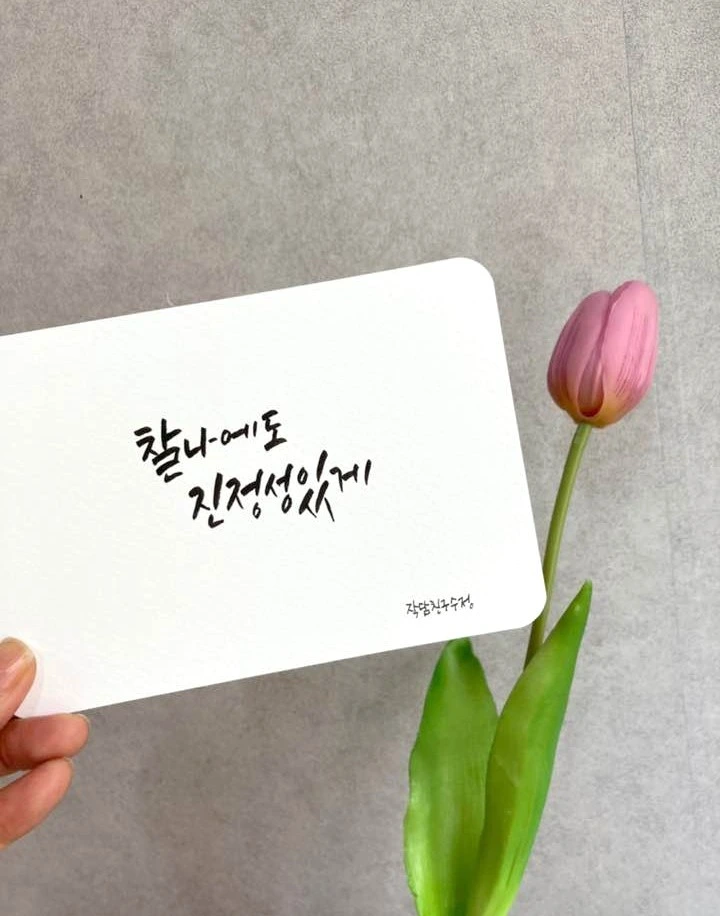 찰나에도
진정성있게
작담친구수정